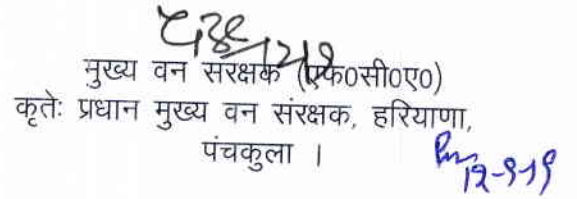 मुख्य वन सरक्षक (एफ0सी0ए0)
कृतेः प्रधान मुख्य वन संरक्षक, हरियाणा,
पंचकुला ।